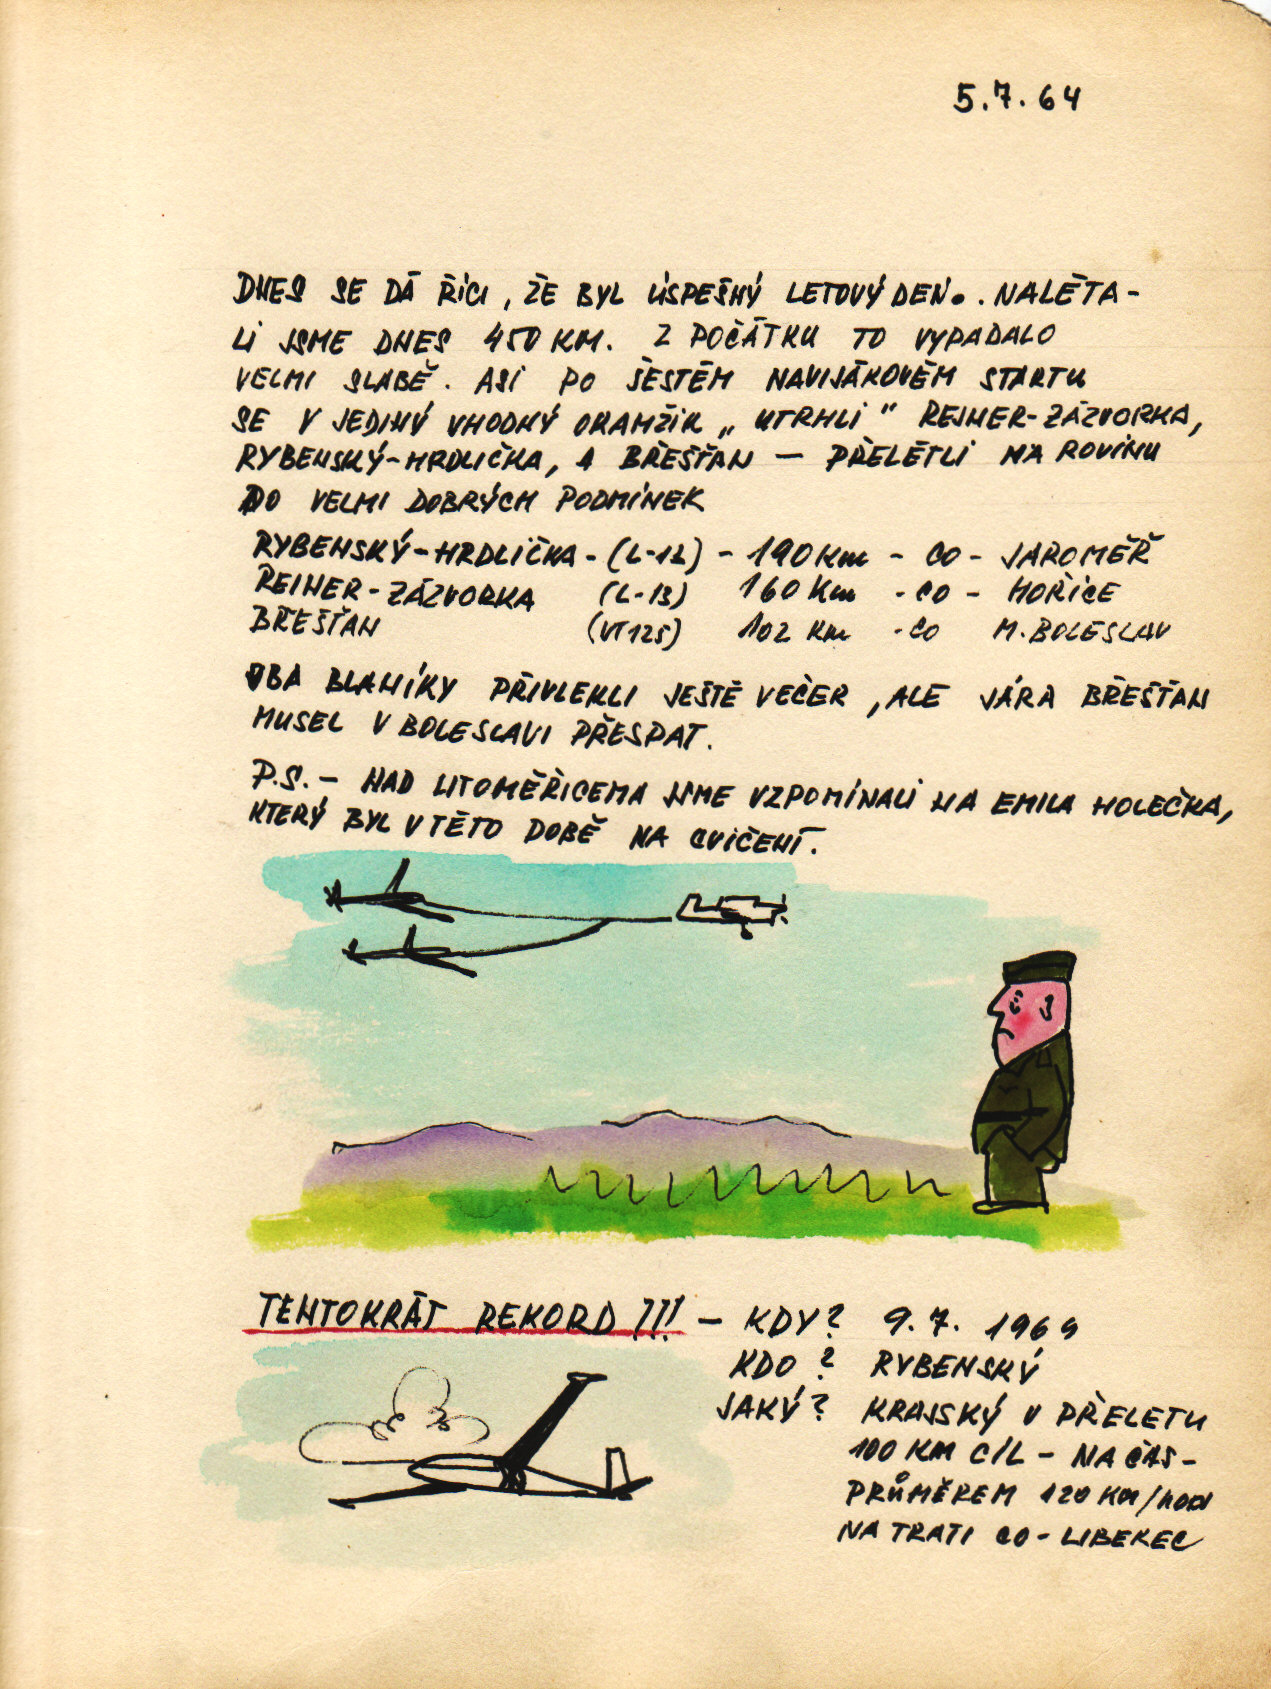 5.7.64
DNES SE DÁ ŘÍCI, ŽE BYL ÚSPEŠNÝ LETOVÝ DEN. . NALÉTA-
LI JSME DNES 450 KM. Z POČÁTKU TO VYPADALO
VELMI SLABĚ. ASI PO ŠESTÉM NAVIJÁKOVÉM STARTU
SE V JEDINÝ VHODNÝ OKAMŽIK „UTRHLI" REINER-ZÁZVORKA,
RYBENSKÝ-HRDLIČKA, A BŘEŠŤAN — PŘELÉTLI NA ROVINU
DO VELMI DOBRÝCH PODMÍNEK
RYBENSKÝ-HRDLIČKA - (L-13) - 190 Km - CO - JAROMĚŘ
REINER-ZÁZVORKA (L-13) 160 Km - CO - HOŘICE
BŘEŠŤAN (VT125) 102 Km - CO M. BOLESLAV
OBA BLANÍKY PŘIVLEKLI JEŠTĚ VEČER, ALE JÁRA BŘEŠŤAN
MUSEL V BOLESLAVI PŘESPAT.
P.S. - NAD LITOMĚŘICEMA JSME VZPOMÍNALI NA EMILA HOLEČKA,
KTERÝ BYL V TÉTO DOBĚ NA CVIČENÍ.
TENTOKRÁT REKORD!!! - KDY? 9. 7. 1964
KDO? RYBENSKÝ
JAKÝ? KRAJSKÝ V PŘELETU
100 KM CÍL - NA ČAS -
PRŮMĚREM 120 KM/HOD
NA TRATI CO - LIBEREC